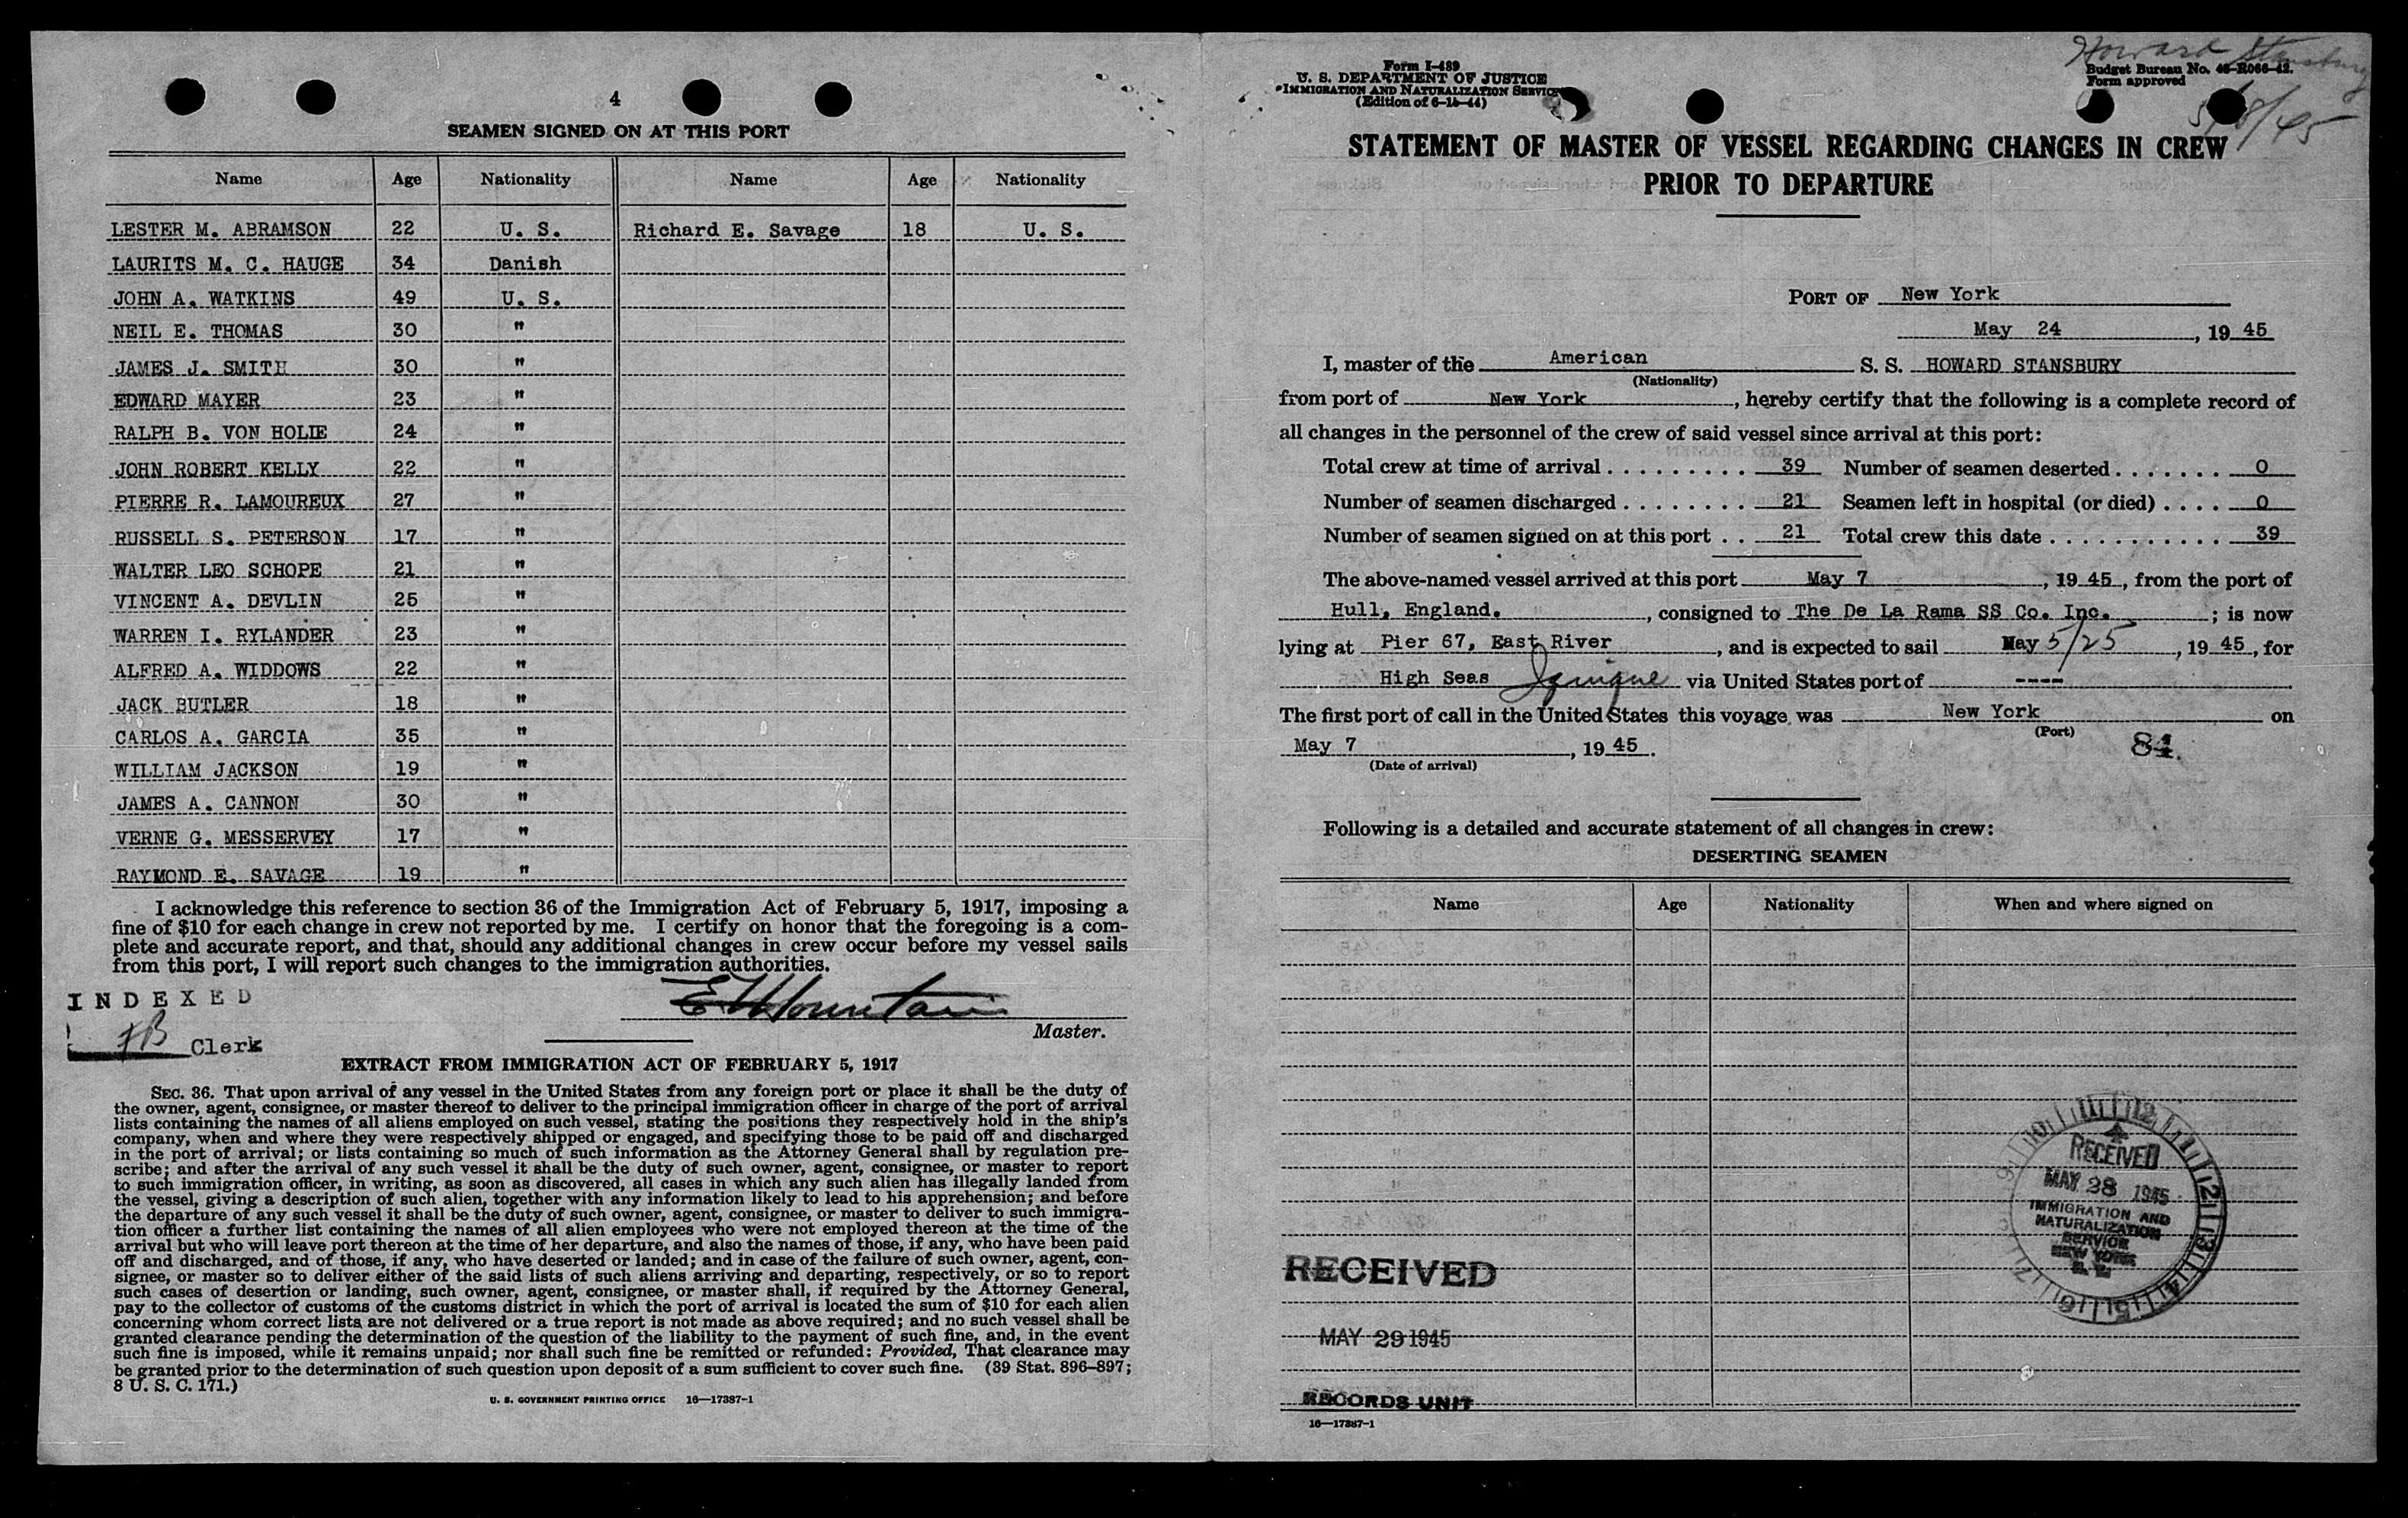 4
SEAMEN SIGNED ON AT THIS PORT
Name Age Nationality Name Age Nationality
LESTER M. ABRAMSON 22 U. S. Richard E. Savage 18 U. S.
LAURITS M. C. HAUGE 34 Danish
JOHN A. WATKINS 49 U. S.
NEIL E. THOMAS 30 "
JAMES J. SMITH 30 "
EDWARD MAYER 23 "
RALPH B. VON HOLIE 24 "
JOHN ROBERT KELLY 22 "
PIERRE R. LAMOUREUX 27 "
RUSSELL S. PETERSON 17 "
WALTER LEO SCHOPE 21 "
VINCENT A. DEVLIN 25 "
WARREN I. RYLANDER 23 "
ALFRED A. WIDDOWS 22 "
JACK BUTLER 18 "
CARLOS A. GARCIA 35 "
WILLIAM JACKSON 19 "
JAMES A. CANNON 30 "
VERNE G. MESSERVEY 17 "
RAYMOND E. SAVAGE 19 "
I acknowledge this reference to section 36 of the Immigration Act of February 5, 1917, imposing a
fine of $10 for each change in crew not reported by me. I certify on honor that the foregoing is a com-
plete and accurate report, and that, should any additional changes in crew occur before my vessel sails
from this port, I will report such changes to the immigration authorities.
INDEXED
Master.
Clerk
EXTRACT FROM IMMIGRATION ACT OF FEBRUARY 5, 1917
SEC. 36. That upon arrival of any vessel in the United States from any foreign port or place it shall be the duty of
the owner, agent, consignee, or master thereof to deliver to the principal immigration officer in charge of the port of arrival
lists containing the names of all aliens employed on such vessel, stating the positions they respectively hold in the ship's
company, when and where they were respectively shipped or engaged, and specifying those to be paid off and discharged
in the port of arrival; or lists containing so much of such information as the Attorney General shall by regulation pre-
scribe; and after the arrival of any such vessel it shall be the duty of such owner, agent, consignee, or master to report
to such immigration officer, in writing, as soon as discovered, all cases in which any such alien has illegally landed from
the vessel, giving a description of such alien, together with any information likely to lead to his apprehension; and before
the departure of any such vessel it shall be the duty of such owner, agent, consignee, or master to deliver to such immigra-
tion officer a further list containing the names of all alien employees who were not employed thereon at the time of the
arrival but who will leave port thereon at the time of her departure, and also the names of those, if any, who have been paid
off and discharged, and of those, if any, who have deserted or landed; and in case of the failure of such owner, agent, con-
signee, or master so to deliver either of the said lists of such aliens arriving and departing, respectively, or so to report
such cases of desertion or landing, such owner, agent, consignee, or master shall, if required by the Attorney General,
pay to the collector of customs of the customs district in which the port of arrival is located the sum of $10 for each alien
concerning whom correct lists are not delivered or a true report is not made as above required; and no such vessel shall be
granted clearance pending the determination of the question of the liability to the payment of such fine, and, in the event
such fine is imposed, while it remains unpaid; nor shall such fine be remitted or refunded: Provided, That clearance may
be granted prior to the determination of such question upon deposit of a sum sufficient to cover such fine. (39 Stat. 896-897;
8 U. S. C. 171.)
U. S. GOVERNMENT PRINTING OFFICE 16—17387-1
Howard Stansbury
Form I-489
U. S. DEPARTMENT OF JUSTICE
IMMIGRATION AND NATURALIZATION SERVICE
(Edition of 6-15-44)
Budget Bureau No. 43-R066-42.
Form approved
STATEMENT OF MASTER OF VESSEL REGARDING CHANGES IN CREW
PRIOR TO DEPARTURE
PORT OF New York
May 24, 19 45
I, master of the American S. S. HOWARD STANSBURY
(Nationality)
from port of New York, hereby certify that the following is a complete record of
all changes in the personnel of the crew of said vessel since arrival at this port:
Total crew at time of arrival . . . . . . . . . 39 Number of seamen deserted . . . . . . . 0
Number of seamen discharged . . . . . . . . 21 Seamen left in hospital (or died) . . . . 0
Number of seamen signed on at this port . . 21 Total crew this date . . . . . . . . . . . 39
The above-named vessel arrived at this port May 7, 19 45, from the port of
Hull, England., consigned to The De La Rama SS Co. Inc.; is now
lying at Pier 67, East River, and is expected to sail May 5/25, 19 45, for
High Seas Iquique via United States port of ----
The first port of call in the United States this voyage was New York on
(Port)
May 7, 19 45.
(Date of arrival)
84.
Following is a detailed and accurate statement of all changes in crew:
DESERTING SEAMEN
Name Age Nationality When and where signed on
RECEIVED
MAY 28 1945
IMMIGRATION AND
NATURALIZATION
SERVICE
NEW YORK
N. Y.
RECEIVED
MAY 29 1945
RECORDS UNIT
16—17387-1